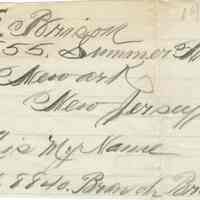 Brison
55. Summer
Newark
New Jersey
is My Name
8840. Branch